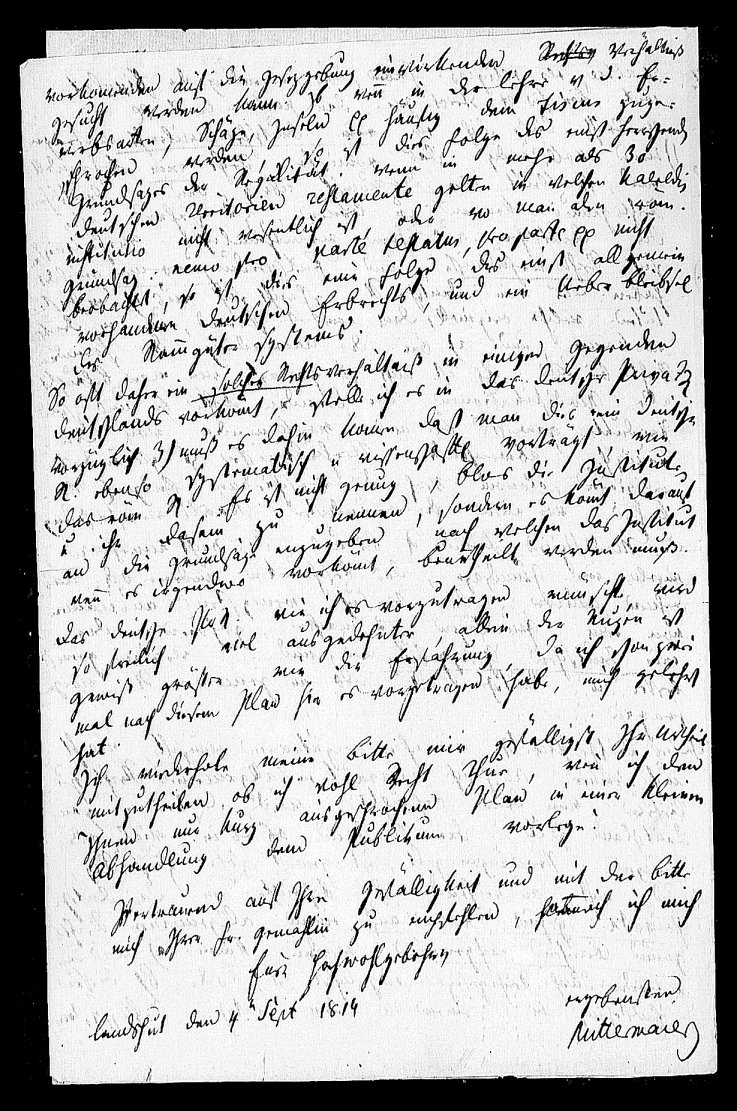 vorkomenden auf die Gesezgebung einwirkenden Rechtsv Verhältniß
gesucht werden kann. So wenn in der Lehre v d. Er-
werbsarten, Schäze, Inseln pp häufig dem Fiscus zuge-
sprochen werden, so ist dies Folge des einst herrschenden
Grundsazes der Regalität. wenn in mehr als 30
deutschen Territorien Testamente gelten in welchen haeredis
institutio nicht wesentlich ist, oder wo man den röm.
Grundsaz. nemo pro parte testatus, pro parte pp nicht
beobachtet, so ist dies eine Folge des einst allgemein
vorhandenen deutschen Erbrechts, und ein Ueberbleibsel
des Stammgüter systems.
So oft daher ein solches Rechtsverhältniß in einigen Gegenden
Deutschlands vorkömt, stelle ich es in das deutsche Privatr
vorzüglich 3) muß es dahin komen daß man dies deutsche
R. ebenso systematisch u wissenschaftl vorträgt wie
das röm R. Es ist nicht genug, blos die Institute
u. ihr Dasein zu nennen, sondern es kömt darauf
an die Grundsäze anzugeben nach welchen das Institut
wenn es irgendwo vorkömt, beurtheilt werden muß.
Das deutsche PrR. wie ich es vorzutragen wünsche, wird
so freilich viel ausgedehnter, allein der Nuzen ist
gewiß größer wie die Erfahrung, da ich schon zwei
mal nach diesem Plan hier es vorgetragen habe, mich gelehrt
hat.
Ich wiederhole meine Bitte mir gefälligst Ihr Urtheil
mitzutheilen ob ich wohl Recht thue, wenn ich den
Ihnen nur kurz ausgesprochenen Plan in einer kleinen
Abhandlung dem Publikum vorlege.
Vertrauend auf Ihre Gefälligkeit und mit der Bitte
mich Ihrer Fr. Gemahlin zu empfehlen, ich mich
Euer Hochwohlgebohrn
Landshut den 4 Sept 1814 ergebensten
Mittermaier